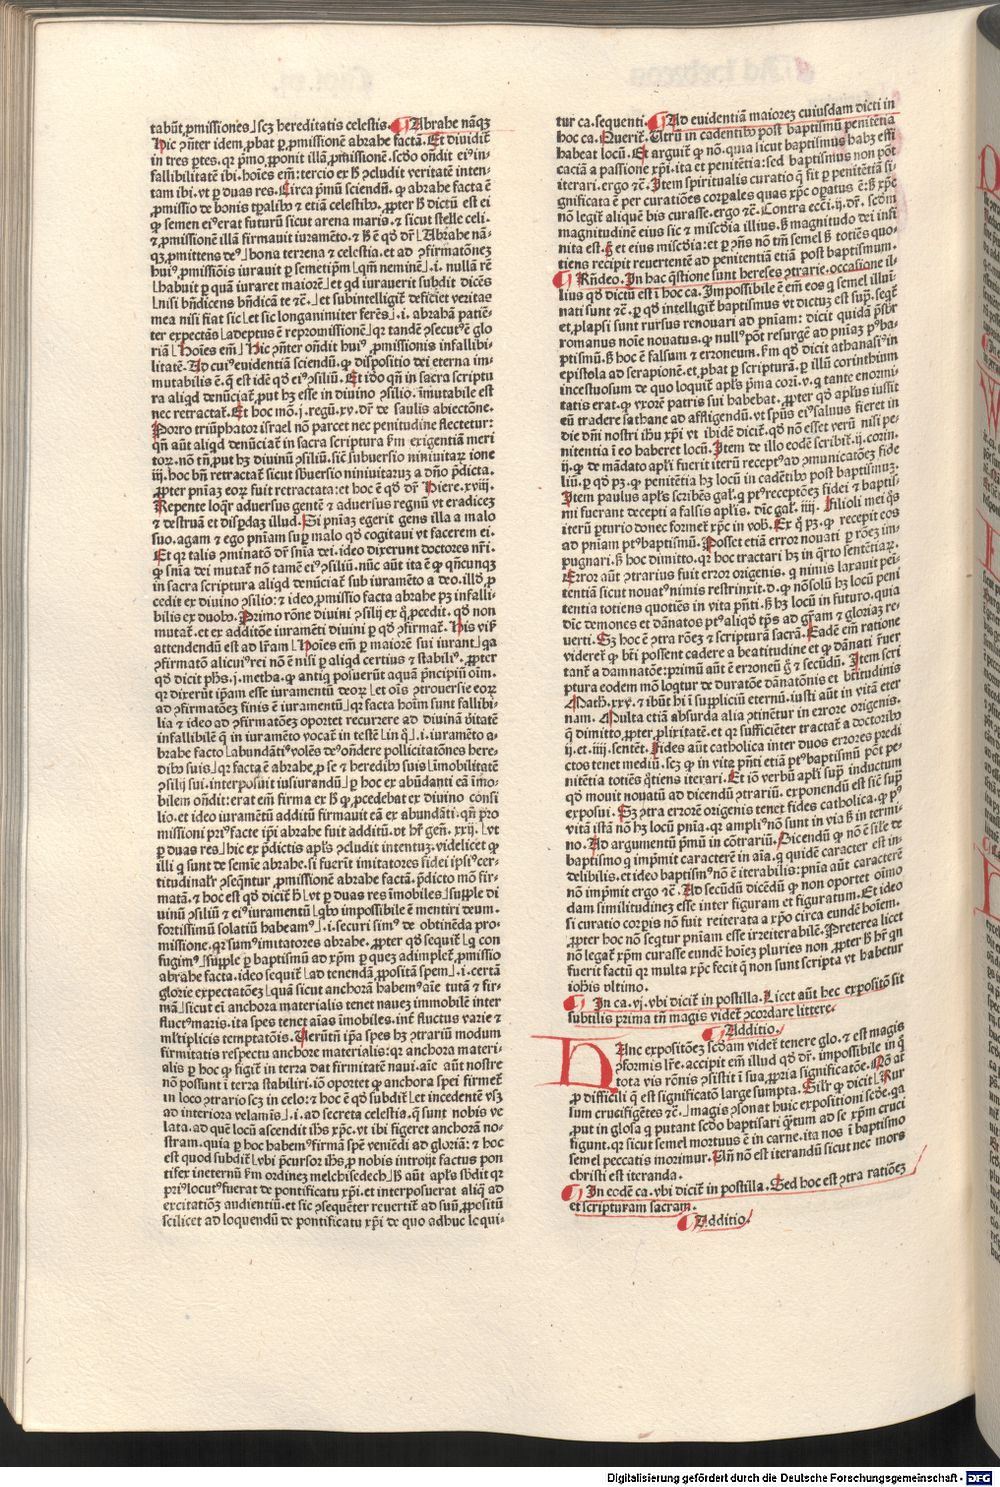 tabũt ꝓmissiones⌋ scꝫ hereditatis celestis. ¶ Abrahe nãqꝫ
Hic ↄ̃ñter idem ꝓbat ꝑ ꝓmissionẽ abrahe factã. Et diuidit̃
in tres ꝑtes. qꝛ pͥmo ꝓponit illã ꝓmissionẽ. scđo oñdit eiꝰ in⸗
fallibilitatẽ ibi. hoĩes em̃: tercio ex ħ ↄcludit veritatẽ inten⸗
tam ibi. vt ꝑ duas res. Circa pͥmũ sciendũ. ꝙ abrahe facta ẽ
ꝓmissio de bonis tꝑalibꝰ ⁊ etiã celestibꝰ. ꝓpter ħ dictũ est ei
ꝙ semen eiꝰ erat futurũ sicut arena maris. ⁊ sicut stelle celi.
⁊ ꝓmissionẽ illã firmauit iuramẽto. ⁊ ħ ẽ qđ dr̃⌊Abrahe nã⸗
qꝫ ꝓmittens deꝰ⌋ bona terrena ⁊ celestia. et ad ↄfirmatõnẽ
huiꝰ ꝓmissiõis iurauit ꝑ semetip̃m⌊qm̃ neminẽ⌋ .i. nullã rẽ
⌊habuit ꝑ quã iuraret maiorẽ⌋ et qđ iurauerit subdit dicẽs
⌊nisi bñdicens bñdicã te ⁊c̃.⌋ et subintelligit̃ deficiet veritas
mea nisi fiat sic⌊et sic longanimiter ferẽs⌋ .i. abrahã patiẽ⸗
ter expectãs⌊adeptus ẽ repromissionẽ⌋ qꝛ tandẽ ↄsecutꝰ ẽ glo
riã⌊Hoĩes em̃⌋ Hic ↄ̃ñter oñdit huiꝰ ꝓmissionis infallibi⸗
litatẽ. Ad cuiꝰ euidentiã sciendũ. ꝙ dispositio dei eterna im⸗
mutabilis ẽ. q̃ est idẽ qđ eiꝰ ↄsiliũ. Et iđo qñ in sacra scriptu
ra aliqđ denũciat̃. put hꝫ esse in diuino ↄsilio. ĩmutabile est
nec retractat̃. Et hoc mõ .j. regũ. xv. dr̃ de saulis abiectõne.
Porro triũphator israel nõ parcet nec penitudine flectetur:
qñ aũt aliqđ denũciat̃ in sacra scriptura ẜm exigentiã meri
toꝝ. nõ tñ put hꝫ diuinũ ↄsiliũ. sic̃ subuersio niniuitarꝝ ione
iij. hoc bñ retractat̃ sicut sbuersio niniuitarꝝ a dño p̃dicta.
ꝓpter pñiaꝫ eoꝝ fuit retractata: et hoc ẽ qđ dr̃ Hiere. xviij.
Repente loqr̃ aduersus gentẽ ⁊ aduersus regnũ vt eradicẽ
⁊ destruã et disꝑdaꝫ illud. Si pñiaꝫ egerit gens illa a malo
suo. agam ⁊ ego pñiam suꝑ malo qđ cogitaui vt facerem ei.
Et qꝛ talis ↄminatõ dr̃ sñia dei. ideo dixerunt doctores nr̃i.
ꝙ sñia dei mutat̃ nõ tamẽ eiꝰ ↄsiliũ. nũc aũt ita ẽ ꝙ qñcunqꝫ
in sacra scriptura aliqđ denũciat̃ sub iuramẽto a deo. illđ ꝓ
cedit ex diuino ↄsilio: ⁊ ideo ꝓmissio facta abrahe pꝫ infalli⸗
bilis ex duobꝰ. Primo rõne diuini ↄsilij ex q̊ ꝓcedit. qđ non
mutat̃. et ex additõe iuramẽti diuini ꝑ qđ ↄfirmat̃. His visͣ
attendendũ est ad lr̃am⌊Hoĩes em̃ ꝑ maiorẽ sui iurant⌋ qꝛ
ↄfirmatõ alicuiꝰ rei nõ ẽ nisi ꝑ aliqđ certius ⁊ stabiliꝰ. ꝓpter
qđ dicit ph̃s .j. metha. ꝙ antiqͥ posuerũt aquã pͥncipiũ oĩm.
qꝛ dixerũt ip̃am esse iuramentũ deoꝝ⌊et oĩs ↄtrouersie eoꝝ
ad ↄfirmatõeꝫ finis ẽ iuramentũ⌋ qꝛ facta hoĩm sunt fallibi⸗
lia ⁊ ideo ad ↄfirmatõeꝫ oportet recurrere ad diuinã vͥtatẽ
infallibilẽ q̃ in iuramẽto vocat̃ in testẽ⌊in q̊⌋ .i. iuramẽto a⸗
brahe facto⌊abundãtiꝰ volẽs deꝰ oñdere pollicitatõnes here⸗
dibꝰ suis⌋ qꝛ facta ẽ abrahe ꝓ se ⁊ heredibꝰ suis⌊ĩmobilitatẽ
ↄsilij sui. interposuit iusiurandũ⌋ ꝑ hoc ex abũdanti eã ĩmo⸗
bilem oñdit: erat em̃ firma ex ħ ꝙ ꝓcedebat ex diuino consi
lio. et ideo iuramentũ additũ firmauit eã ex abundãti. qñ pro
missioni priꝰ facte ip̃i abrahe fuit additũ. vt hr̃ geñ. xxij.⌊vt
ꝑ duas res⌋ hic ex p̃dictis apl̃s ↄcludit intentuꝫ. videlicet ꝙ
illi q̃ sunt de semie abrahe. si fuerint imitatores fidei ipsiꝰ cer⸗
titudinalr̃ ↄseqñtur ꝓmissionẽ abrahe p̃dicto mõ fir⸗
matã. ⁊ hoc est qđ dicit̃ ħ⌊vt ꝑ duas res ĩmobiles⌋ supple di
uinũ ↄsiliũ ⁊ eiꝰ iuramentũ⌊qͥbꝰ impossibile ẽ mentiri deum.
fortissimũ solatiũ habeamꝰ⌋ .i. securi simꝰ de obtinẽda pro⸗
missione. qꝛ sumꝰ imitatores abrahe. ꝓpter qđ sequit̃⌊q̃ con
fugimꝰ⌋ supple ꝑ baptismũ ad xp̃m ꝑ queꝫ adimplet̃ ꝓmissio
abrahe facta. ideo sequit̃⌊ad tenendã ꝓpositã spem⌋ .i. certã
glorie expectatõeꝫ⌊quã sicut anchorã habemꝰ aĩe tutã ⁊ fir⸗
mã⌋ sicut em̃ anchora materialis tenet nauẽ immobilẽ inter
fluctꝰ maris. ita spes tenet aĩas ĩmobiles. int̃ fluctus varie ⁊
ml̃tiplicis temptatõis. Verũtñ ip̃a spes hꝫ ↄtrariũ modum
firmitatis respectu anchore materialis: qꝛ anchora materi⸗
alis ꝑ hoc ꝙ figit̃ in terra dat firmitatẽ naui. aĩe aũt nostre
nõ possunt ĩ terra stabiliri. iõ oportet ꝙ anchora spei firmet̃
in loco ↄtrario scꝫ in celo: ⁊ hoc ẽ qđ subdit̃⌊et incedentẽ vsqꝫ
ad interiora velamis⌋ .i. ad secreta celestia. q̃ sunt nobis ve
lata. ad quẽ locũ ascendit ih̃s xp̃c. vt ibi figeret anchorã no⸗
stram. quia ꝑ hoc habemꝰ firmã spẽ veniẽdi ad gloriã: ⁊ hoc
est quod subdit̃⌊vbi p̃cursor ih̃s ꝓ nobis introijt factus pon
tifex in eternũ ẜm ordineꝫ melchisedech⌋ ħ aũt apl̃s sb̃dit qꝛ
priꝰ locutꝰ fuerat de pontificatu xp̃i. et interposuerat aliqͣ ad
excitatiõeꝫ audientiũ. et sic ↄsequẽter reuertit̃ ad suũ ꝓpositũ
scilicet ad loquendũ de pontificatu xp̃i de quo adhuc loqui⸗
tur ca. sequenti. ¶ Ad euidentiã maiorẽ cuiusdam dicti in
hoc ca. Querit̃. Utrũ in cadentibꝰ post baptismũ penitẽtia
habeat locũ. Et arguit̃ ꝙ nõ. quia sicut baptismus habꝫ effi
caciã a passione xp̃i. ita et penitẽtia: sed baptismus non põt
iterari. ergo ⁊c̃. Item spiritualis curatio q̃ fit ꝑ penitẽtiã si⸗
gnificata ẽ per curatiões corꝑales quas xp̃c oꝑatus ẽ: ħ xp̃c
nõ legit̃ aliquẽ bis curasse. ergo ⁊c̃. Contra ecc̃i. ij. dr̃. scđm
magnitudinẽ eius sic ⁊ misc̃dia illius. ħ magnitudo dei infi
nita est. g̊ et eius misc̃dia: et ꝑ ↄ̃ñs nõ tm̃ semel ħ totiẽs quo⸗
tiens recipit reuertentẽ ad penitentiã etiã post baptismum.
¶ Rñdeo. In hac q̃stione sunt hereses ↄtrarie. occasione il⸗
lius qđ dictũ est ĩ hoc ca. Impossibile ẽ em̃ eos q̃ semel illuĩ⸗
nati sunt ⁊c̃. ꝑ qđ intelligit̃ baptismus vt dictuꝫ est supͣ. seqͥt̃
et ꝓlapsi sunt rursus renouari ad pñiam: dicit quidã p̃sbr̃
romanus noĩe nouatus. ꝙ nullꝰ põt resurgẽ ad pñiaꝫ pꝰ ba⸗
ptismũ. ħ hoc ẽ falsum ⁊ erroneum. ẜm qđ dicit athanasiꝰ in
epistola ad serapionẽ. et ꝓbat ꝑ scripturã. ꝑ illũ corinthium
incestuosum de quo loquit̃ apl̃s pͥma cori. v. q̃ tante enormi⸗
tatis erat. ꝙ vxorẽ patris sui habebat. ꝓpter qđ apl̃us iussit
eũ tradere sathane ad affligendũ. vt spũs eiꝰ saluus fieret in
die dñi nostri ih̃u xp̃i vt ibidẽ dicit̃. qđ nõ esset verũ nisi pe⸗
nitentia ĩ eo haberet locũ. Item de illo eodẽ scribit̃ .ij. corin.
ij. ꝙ de mãdato apl̃i fuerit iterũ receptꝰ ad ↄmunicatõeꝫ fide
liũ. ꝑ qđ pꝫ. ꝙ penitẽtia hꝫ locũ in cadẽtibꝰ post baptismuꝫ.
Item paulus apl̃s scribẽs gal̃. q̃ ptꝰ receptõeꝫ fidei ⁊ baptis⸗
mi fuerant decepti a falsis apl̃is. dic̃ gal̃. iiij. Filioli mei qͦs
iterũ ꝑturio donec formet̃ xp̃c in vob̃. Ex q̊ pꝫ. ꝙ recepit eos
ad pñiam ptꝰ baptismũ. Posset etiã error nouati ꝑ rõeꝫ im⸗
pugnari. ħ hoc dimitto. qꝛ hoc tractari hꝫ in q̊rto sentẽtiarꝝ.
Error aũt ↄtrarius fuit error origenis. q̃ nimis laxauit peñ⸗
tentiã sicut nouatꝰ nimis restrinxit. đ. ꝙ nõ solũ hꝫ locũ peni
tentia totiens quotiẽs in vita pñti. ħ hꝫ locũ in futuro. quia
dic̃ demones et dãnatos ptꝰ aliqđ tp̃s ad gr̃am ⁊ gloriaꝫ re⸗
uerti. Sꝫ hoc ẽ ↄtra rõeꝫ ⁊ scripturã sacrã. Eadẽ em̃ ratione
videret̃ ꝙ bt̃i possent cadere a beatitudine et ꝙ dãnati r̃uer
tant̃ a damnatõe: primũ aũt ẽ erroneũ g̊ ⁊ secũdũ. Item scri
ptura eodem mõ loqtur de duratõe dãnatõnis et bt̃itudinis
Math. xxv. ⁊ ibũt hi ĩ suppliciũ eternũ. iusti aũt in vitã eter
nam. Multa etiã absurda alia ↄtinẽtur in errore origenis.
q̃ dimitto ꝓpter ꝓlixitatẽ. et qꝛ sufficiẽter tractat̃ a doctoribꝰ
ij. et. iiij. senteñ. Fides aũt catholica inter duos errores predi
ctos tenet mediũ. scꝫ ꝙ in vite pñti etiã ptꝰ baptismũ põt pe⸗
nitẽtia totiẽs q̊tiens iterari. Et iõ verbũ apl̃i supͣ inductum
qđ mouit nouatũ ad dicendũ ↄtrariũ. exponendũ est sic̃ supͣ
exposui. Sꝫ ↄtra errorẽ origenis tenet fides catholica. ꝙ pꝰ
vitã istã nõ hꝫ locũ pñia. qꝛ ampliꝰ nõ sunt in via ħ in termi⸗
no. Ad argumentũ pͥmũ in cõtrariũ. Dicendũ ꝙ nõ ẽ sil̃e de
baptismo q̃ impͥmit caracterẽ in aĩa. q̃ quidẽ caracter est in⸗
delibilis. et ideo baptismꝰ nõ ẽ iterabilis: pñia aũt caracterẽ
nõ imp̃mit ergo ⁊c̃. Ad secũdũ dicẽdũ ꝙ non oportet oĩmo
dam similitudineꝫ esse inter figuram et figuratum. Et ideo
si curatio corꝑis nõ fuit reiterata a xp̃o circa eundẽ hoĩem.
ꝓpter hoc nõ seqtur pñiam esse irreiterabilẽ. Preterea licet
nõ legat̃ xp̃m curasse eundẽ hoĩeꝫ pluries non ꝓpter ħ hr̃ qn
fuerit factũ qꝛ multa xp̃c fecit q̃ non sunt scripta vt habetur
ioh̃is vltimo.
¶ In ca. vj. vbi dicit̃ in postilla. Licet aũt hec expositõ sit
subtilis prima tñ magis videt̃ ↄcordare littere.
¶ Additio.
HAnc expositõeꝫ scđam videt̃ tenere glo. ⁊ est magis
ↄformis lr̃e. accipit em̃ illud qđ dr̃. impossibile in q̊
tota vis rõnis ↄsistit ĩ sua ꝓpria significatõe. Nõ at̃
ꝓ difficili q̃ est significatõ large sumpta. Sil̃r ꝙ dicit⌊Rur
sum crucifigẽtes ⁊c̃.⌋ magis ↄsonat huic expositioni scđe. qꝛ
put in glosa q̃ putant scđo baptisari q̃tum ad se xp̃m cruci
figunt. qꝛ sicut semel mortuus ẽ in carne. ita nos ĩ baptismo
semel peccatis morimur. Uñ nõ est iterandũ sicut nec mors
christi est iteranda.
¶ In eodẽ ca. vbi dicit̃ in postilla. Sed hoc est ↄtra ratiõeꝫ
et scripturam sacram.
¶ Additio.
Digitalisierung gefördert durch die Deutsche Forschungsgemeinschaft - DFG